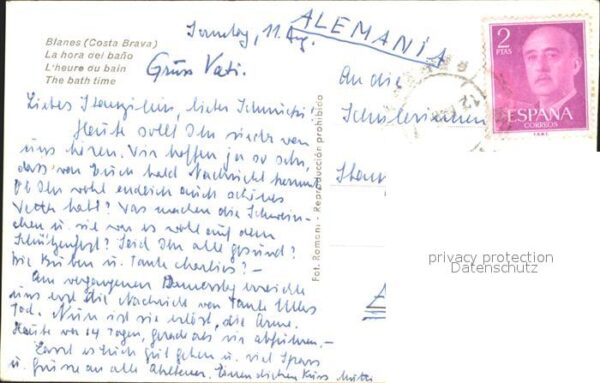 Blanes (Costa Brava)
La hora del baño
L'heure du bain
The bath time
Sonntag, 11. Aug.
ALEMANIA
Gruss Vati.
Liebes, lieber Schnucki!
Heute sollt Ihr wieder von
uns hören. Wir hoffen ja so sehr,
dass von Euch bald Nachricht kommt.
Ob Ihr wohl endlich auch schönes
Wetter habt? Was machen die Schwein-
chen u. wie war es wohl auf dem
Schützenfest? Seid Ihr alle gesund?
Die Buben u. Tante Charlies? -
Am vergangenen Donnerstag erreichte
uns erst die Nachricht von Tante
Tod. Nun ist sie erlöst, die Arme.
Heute vor 14 Tagen, gerade als wir abfuhren. -
Lasst es Euch gut gehen u. viel Spass
u. Grüsse an alle. Einen dicken Kuss Mutti
Fot. Romani - Reproducción prohibida
An die
Schülerinnen
2
PTAS
ESPAÑA
CORREOS
privacy protection
Datenschutz